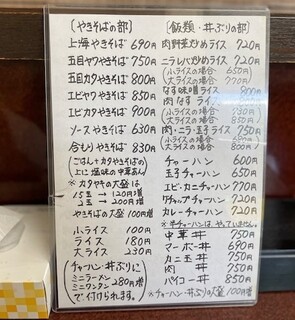 (やきそばの部)
上海やきそば 690円
五目ヤワやきそば 750円
五目カタやきそば 800円
エビヤワやきそば 850円
エビカタやきそば 900円
ソースやきそば 630円
やきそば 830円
(ごはん+カタやきそばの)
(上に塩味の中華あん)
※カタヤキの大盛は
15玉→120円増
2玉→200円増
やきそばの大盛 100円増
小ライス 100円
ライス 180円
大ライス 230円
(チャーハン・丼ぶりに)
ミニラーメン
ミニワンタン 280円増
で付けられます。
(飯類・丼ぶりの部)
肉野菜炒めライス 720円
ニラレバ炒めライス 720円
(小ライスの場合 650円)
(大ライスの場合 770円)
なす味噌ライス 800円
肉なすライス 800円
(小ライスの場合 730円)
(大ライスの場合 850円)
肉・ニラ・玉子ライス 750円
(小ライスの場合 680円)
(大ライスの場合 800円)
チャーハン 600円
玉子チャーハン 650円
エビ・カニチャーハン 770円
ケチャップチャーハン 720円
カレーチャーハン 720円
※半チャーハンは、やっていません。
中華丼 750円
マーボー丼 690円
カニ玉丼 750円
肉丼 750円
パイコー丼 850円
※チャーハン・丼ぶりの大盛 100円増